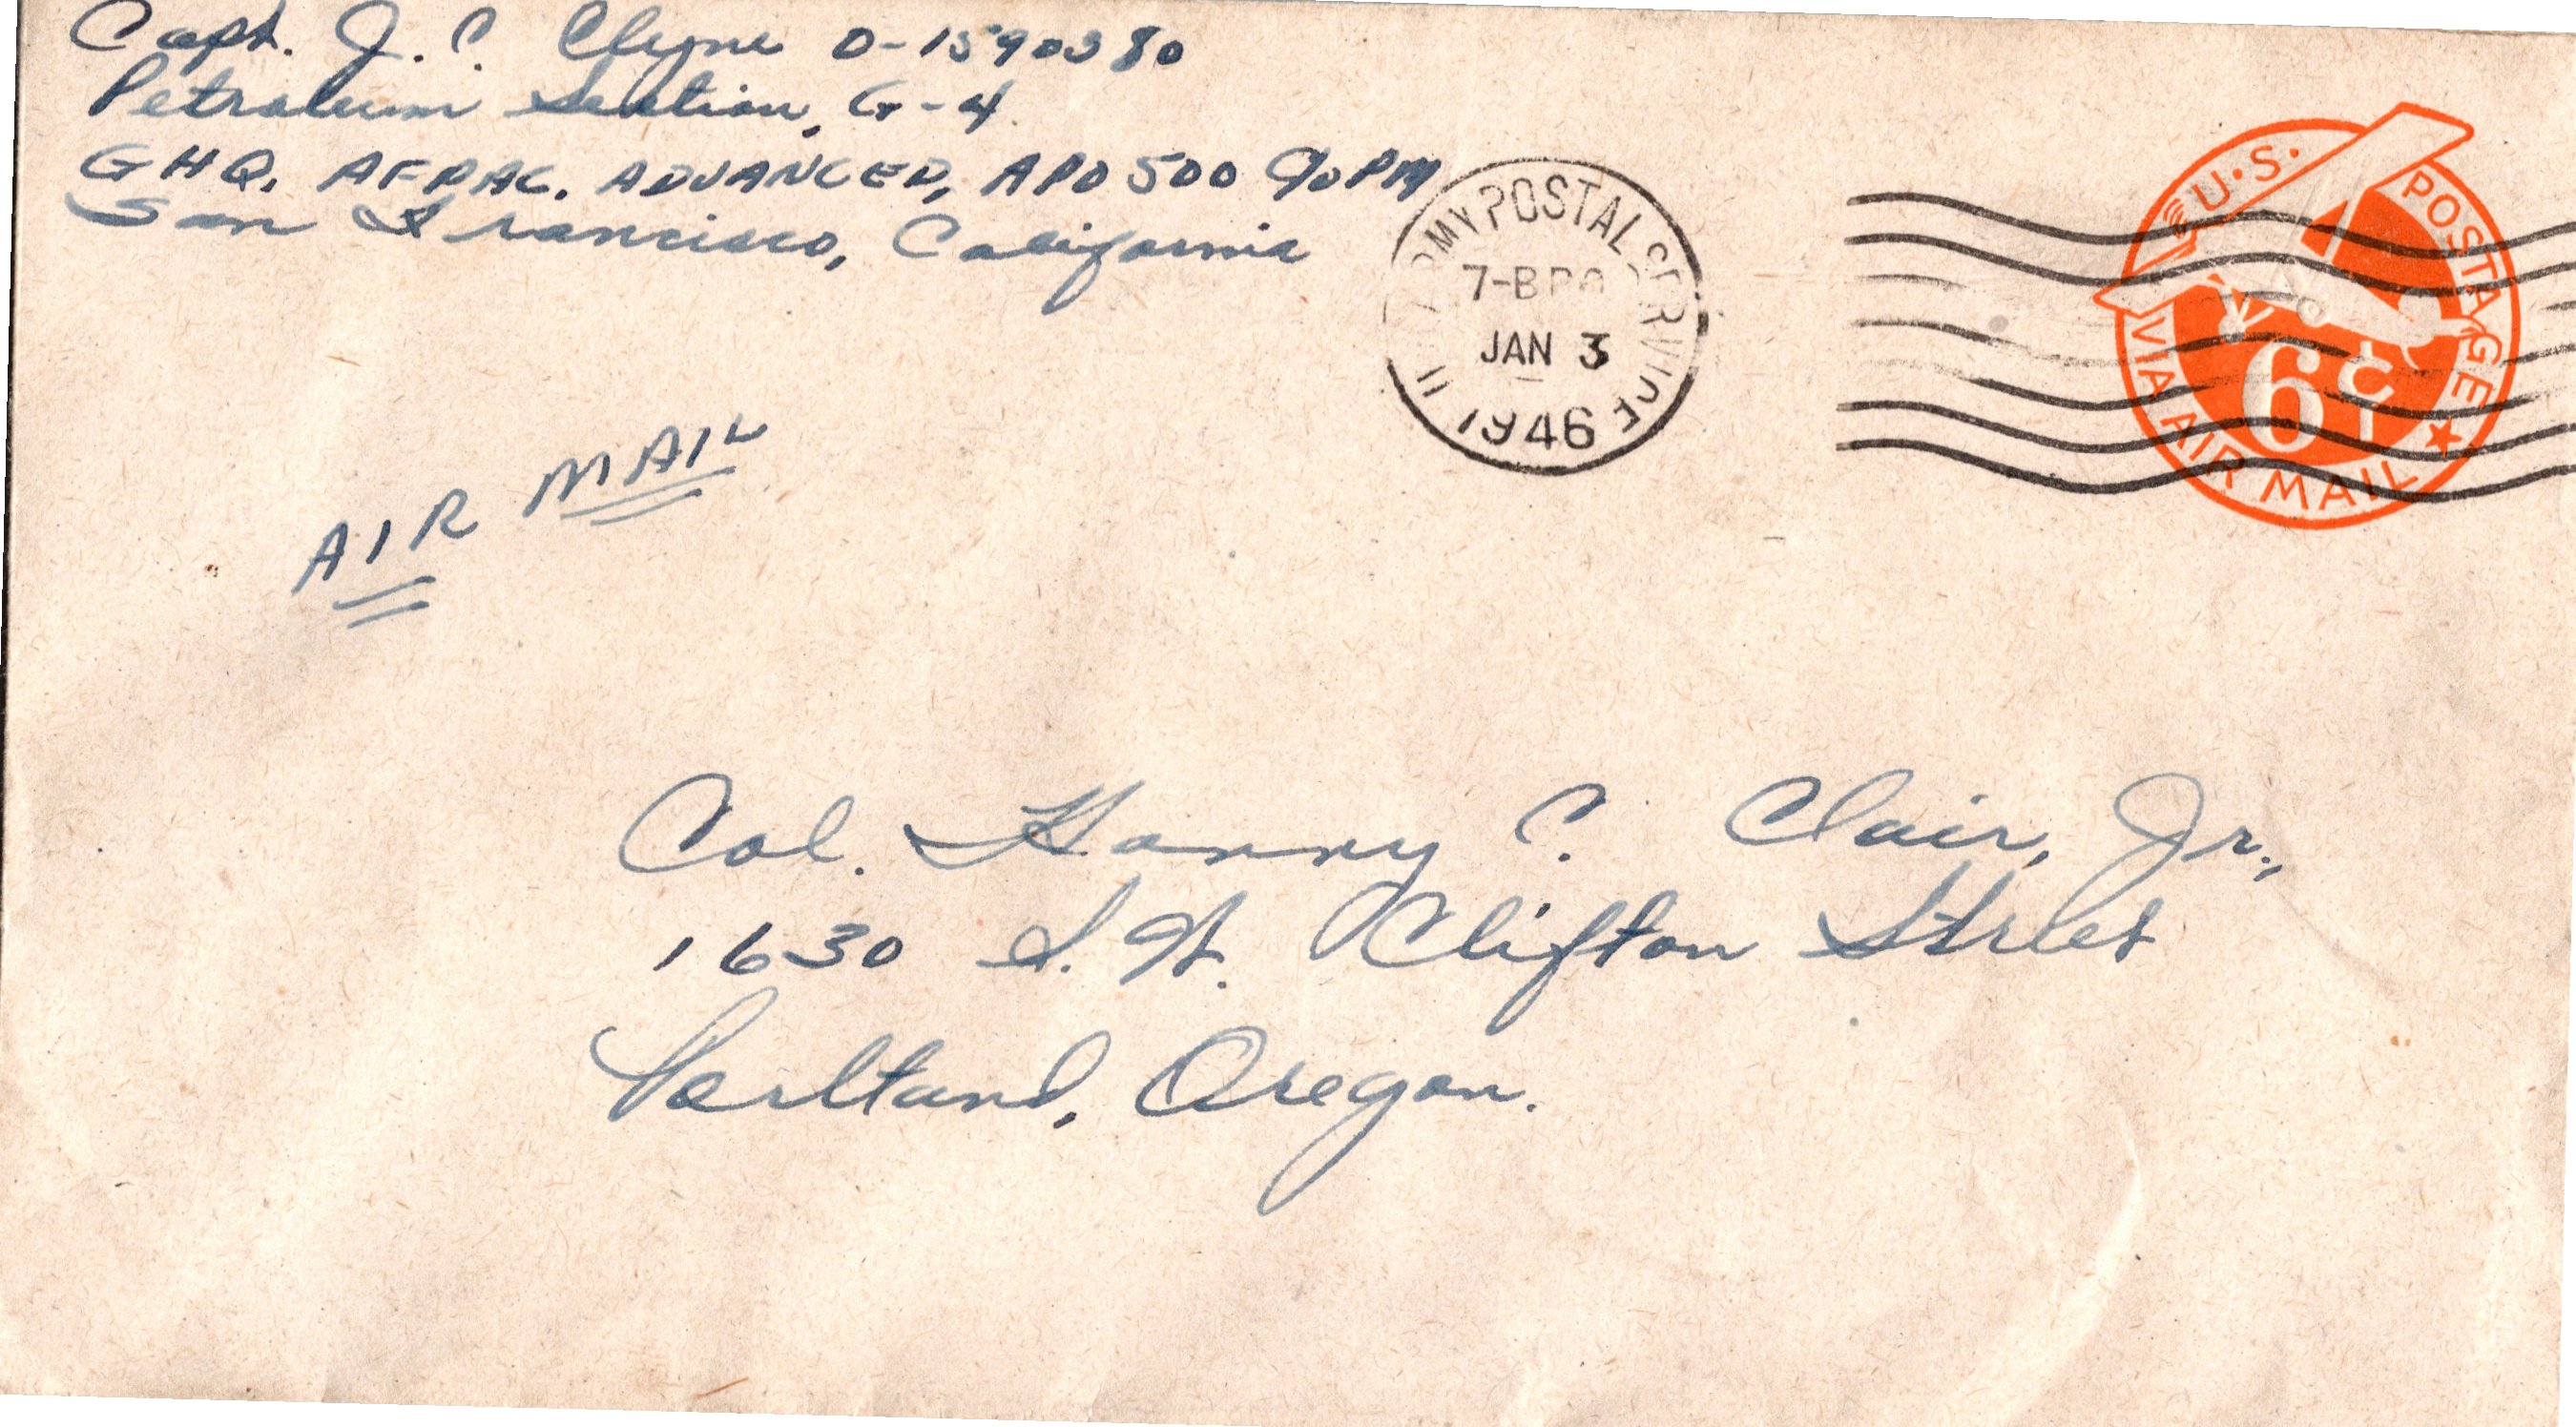 Capt. J. C. Clyne O-1590380
Petroleum Section, G-4
GHQ, AFPAC, ADVANCED, APO 500 c/o PM
San Francisco, California
ARMY POSTAL SERVICE
7-BPO
JAN 3
1946
U.S. POSTAGE
6¢
VIA AIR MAIL
AIR MAIL
Col. Harry C. Clair, Jr.,
1630 S.W. Clifton Street
Portland, Oregon.